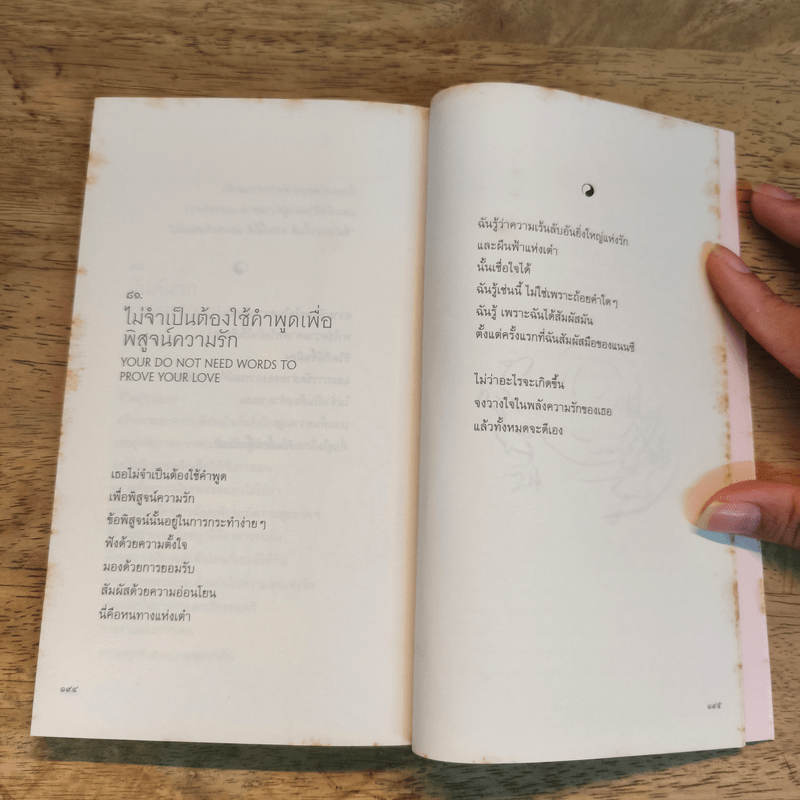 ๘๑.
ไม่จำเป็นต้องใช้คำพูดเพื่อ
พิสูจน์ความรัก
YOUR DO NOT NEED WORDS TO
PROVE YOUR LOVE
เธอไม่จำเป็นต้องใช้คำพูด
เพื่อพิสูจน์ความรัก
ข้อพิสูจน์นั้นอยู่ในการกระทำง่ายๆ
ฟังด้วยความตั้งใจ
มองด้วยการยอมรับ
สัมผัสด้วยความอ่อนโยน
นี่คือหนทางแห่งเต๋า
๑๙๔
ฉันรู้ว่าความเร้นลับอันยิ่งใหญ่แห่งรัก
และผืนฟ้าแห่งเต๋า
นั้นเชื่อใจได้
ฉันรู้เช่นนี้ ไม่ใช่เพราะถ้อยคำใดๆ
ฉันรู้ เพราะฉันได้สัมผัสมัน
ตั้งแต่ครั้งแรกที่ฉันสัมผัสมือของแนนซี
ไม่ว่าอะไรจะเกิดขึ้น
จงวางใจในพลังความรักของเธอ
แล้วทั้งหมดจะดีเอง
๑๙๕